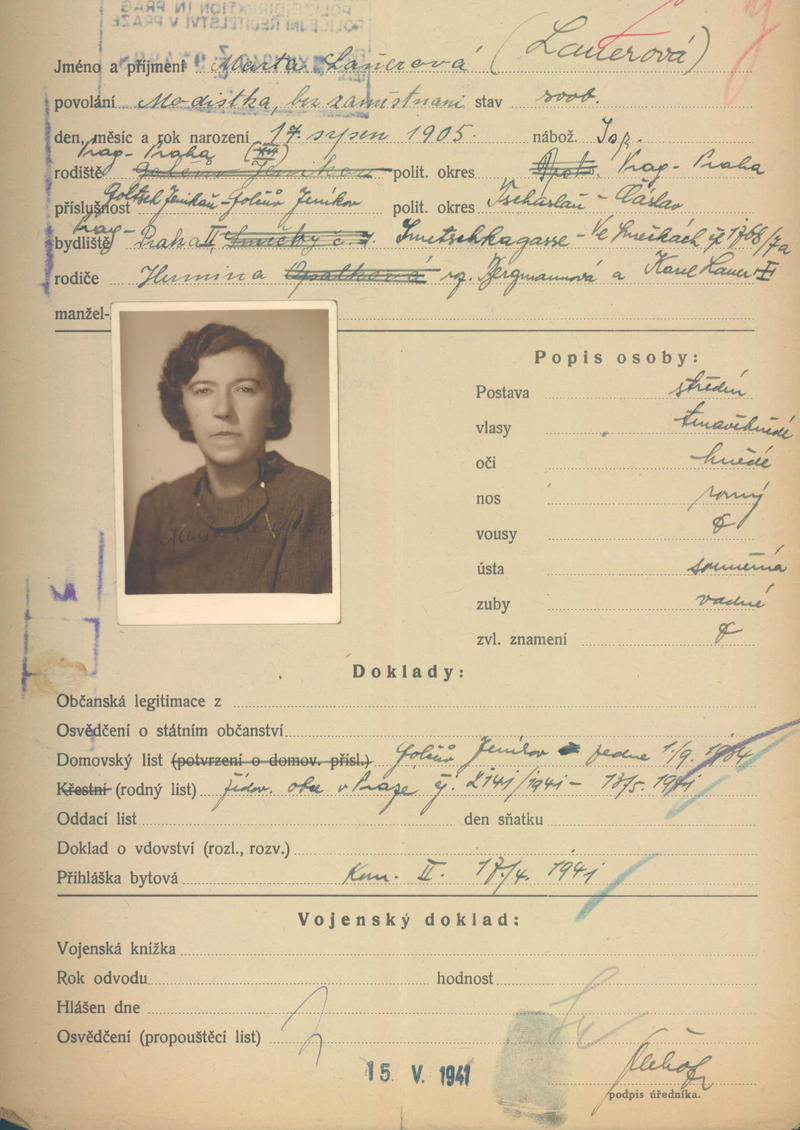 POLIZEIDIREKTION IN PRAG
POLICEJNÍ ŘEDITELSTVÍ V PRAZE
Jméno a příjmení Marta Lauerová (Lauerová)
povolání Modistka, bez zaměstnani stav svob.
den, měsíc a rok narození 17. srpen 1905. nábož. Isr.
Prag - Praha (XII)
rodiště Golčův Jeníkov polit. okres Prag - Praha
příslušnost Goltsch Jenikau - Golčův Jeníkov polit. okres Tschaslau - Čáslav
Prag -
bydliště Praha II Smečky č. 7. Smetschkagasse - Ve Smečkách čp. 1768/7a
rodiče Hermina Opatková roz. Bergmannová a Karel Lauer
manžel-
Popis osoby:
Postava střední
vlasy tmavěhnědé
oči hnědé
nos rovný
vousy
ústa souměrná
zuby vadné
zvl. znamení
Doklady:
Občanská legitimace z
Osvědčení o státním občanství
Domovský list (potvrzení o domov. přísl.) Golčův Jeníkov 1/9. 1934
Křestní (rodný list) židov. obec v Praze čj. 2141/1941 - 13/5. 1941
Oddací list den sňatku
Doklad o vdovství (rozl., rozv.)
Přihláška bytová Kom. II. 17/4. 1941
Vojenský doklad:
Vojenská knížka
Rok odvodu hodnost
Hlášen dne
Osvědčení (propouštěcí list)
15. V. 1941
podpis úředníka.